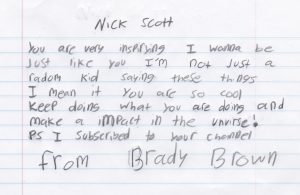 Nick Scott
You are very inspiring I wanna be
Just like you I'm not Just a
radom kid saying these things
I mean it You are so cool
Keep doing what you are doing and
make a impact in the unvirse!
PS I subscribed to your channel
from Brady Brown